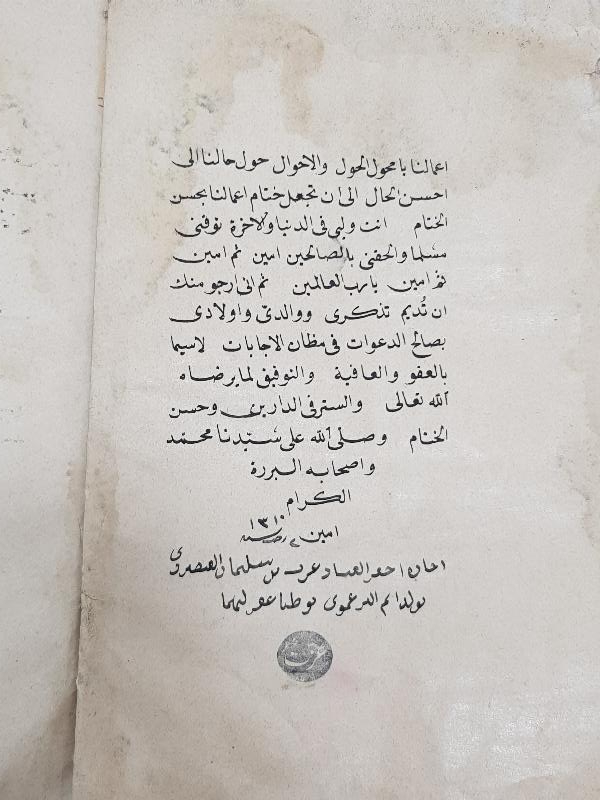 اعمالنا يا محول الحول والاحوال حول حالنا الى
احسن الحال الى ان تجعل ختام اعمالنا بحسن
الختام انت وليى فى الدنيا والآخرة توفنى
مسلما والحقنى بالصالحين امين ثم امين
ثم امين يا رب العالمين ثم انى ارجو منك
ان تُديم تذكرى ووالدىّ واولادى
بصالح الدعوات فى مظان الاجابات لاسيما
بالعفو والعافية والتوفيق لما يرضاه
الله تعالى والستر فى الدارين وحسن
الختام وصلى الله على سيّدنا محمّد
واصحابه البررة
الكرام
امين سنة ١٣١٠
احقر العباد عزت بن سليمان
عزت